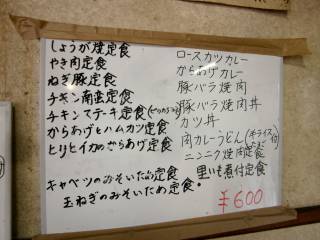 しょうが焼定食
やき肉定食
ねぎ豚定食
チキン南蛮定食
チキンステーキ定食
からあげとハムカツ定食
ヒリヒイカのからあげ定食
キャベツのみそいため定食
玉ねぎのみそいため定食
ロースカツカレー
からあげカレー
豚バラ焼肉
豚バラ焼肉丼
カツ丼
肉カレーうどん(半ライス付)
ニンニク焼肉定食
里いも煮付定食
¥600